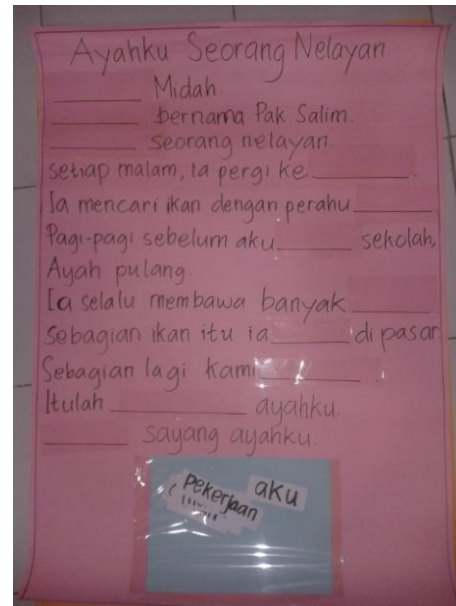 Ayahku Seorang Nelayan
________ Midah.
________ bernama Pak Salim.
________ seorang nelayan.
setiap malam, ia pergi ke ________.
Ia mencari ikan dengan perahu ________
Pagi-pagi sebelum aku ________ sekolah,
Ayah pulang.
Ia selalu membawa banyak ________
Sebagian ikan itu ia ________ di pasar.
Sebagian lagi kami ________
Itulah ________ ayahku.
________ sayang ayahku.
aku
pekerjaan